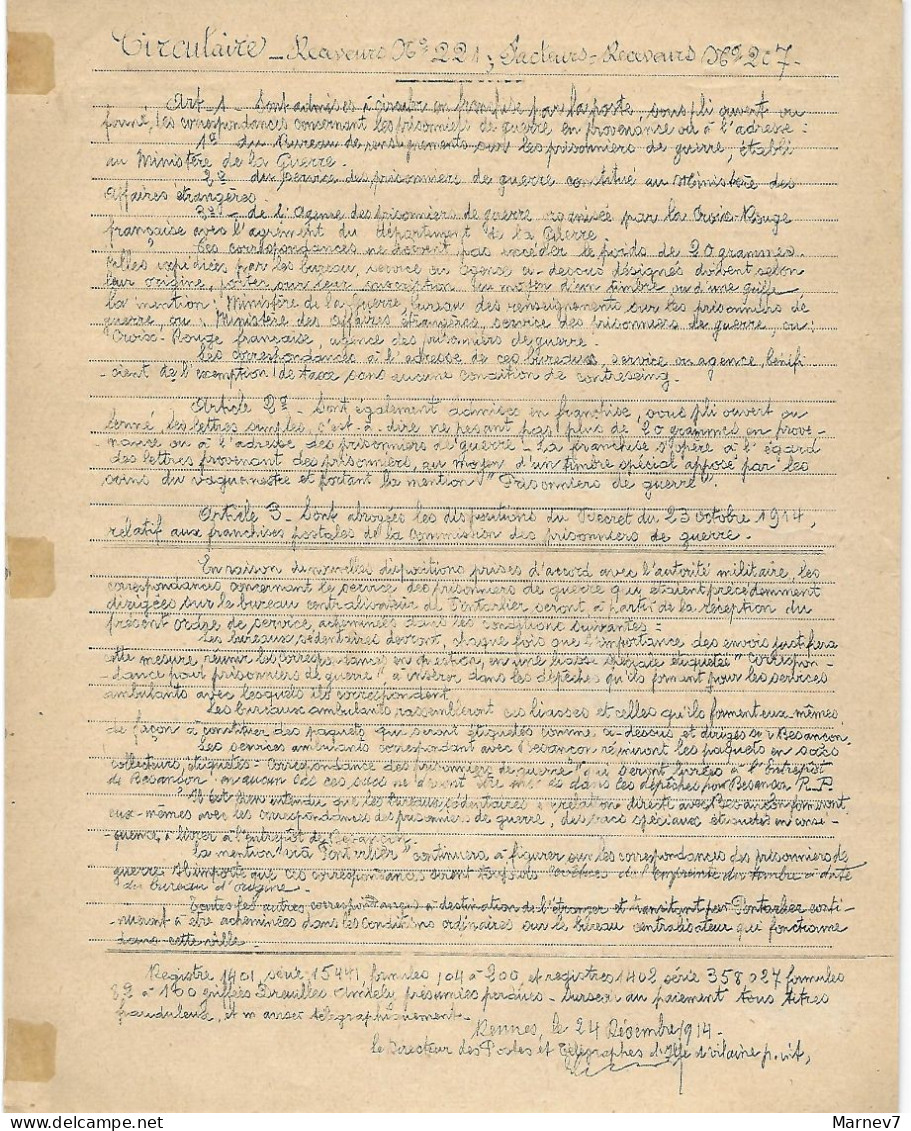 Circulaire - Receveurs Nº 221; Facteurs-Receveurs Nº 207-
Art 1 - Sont admises à circuler en franchise par la poste, sous pli ouvert ou
fermé, les correspondances concernant les prisonniers de guerre en provenance ou à l'adresse:
1º du Bureau de renseignements sur les prisonniers de guerre, établi
au Ministère de la Guerre.
2º du Service des prisonniers de guerre constitué au Ministère des
Affaires étrangères.
3º - de l'Agence des prisonniers de guerre organisée par la Croix-Rouge
française avec l'agrément du département de la Guerre.
Ces correspondances ne doivent pas excéder le poids de 20 grammes.
Celles expédiées par les bureau, service ou agence ci-dessus désignés doivent selon
leur origine, porter sur leur suscription au moyen d'un timbre ou d'une griffe
la mention: Ministère de la Guerre, bureau des renseignements sur les prisonniers de
guerre, ou: Ministère des Affaires étrangères, service des prisonniers de guerre, ou:
Croix-Rouge française, agence des prisonniers de guerre.
Les correspondances à l'adresse de ces bureaux, service ou agence, bénéfi-
-cient de l'exemption de taxe sans aucune condition de contreseing.
Article 2º - Sont également admises en franchise, sous pli ouvert ou
fermé, les lettres simples, c'est-à-dire ne pesant pas plus de 20 grammes en prove-
-nance ou à l'adresse des prisonniers de guerre - La franchise s'opère à l'égard
des lettres provenant des prisonniers, au moyen d'un timbre spécial apposé par les
soins du vaguemestre et portant la mention "Prisonniers de guerre".
Article 3 - Sont abrogées les dispositions du Décret du 23 octobre 1914,
relatif aux franchises postales de la commission des prisonniers de guerre.
En raison de nouvelles dispositions prises d'accord avec l'autorité militaire, les
correspondances concernant le service des prisonniers de guerre qui étaient précédemment
dirigées sur le bureau centralisateur de Pontarlier seront à partir de la réception du
présent ordre de service acheminées dans les conditions suivantes:
Les bureaux sédentaires devront, chaque fois que l'importance des envois justifiera
cette mesure réunir les correspondances en question, en une liasse spéciale étiquetée "Correspon-
-dance pour prisonniers de guerre" à insérer dans les dépêches qu'ils forment pour les services
ambulants avec lesquels ils correspondent.
Les bureaux ambulants rassembleront ces liasses et celles qu'ils forment eux-mêmes,
de façon à constituer des paquets qui seront étiquetés comme ci-dessus et dirigés sur Besançon.
Les services ambulants correspondant avec Besançon réuniront les paquets en sacs
collecteurs, étiquetés - Correspondance des prisonniers de guerre" qui seront livrés à l'Entrepôt
de Besançon. en aucun cas ces sacs ne devront être insérés dans les dépêches pour Besançon R.P.
Il est bien entendu que les bureaux sédentaires en relation directe avec Besançon formeront,
eux-mêmes avec les correspondances des prisonniers de guerre, des sacs spéciaux étiquetés en consé-
-quence, à livrer à l'entrepôt de Besançon.
La mention "via Pontarlier" continuera à figurer sur les correspondances des prisonniers de
guerre. Il importe que ces correspondances soient toujours revêtues de l'empreinte du timbre à date
du bureau d'origine.
Toutes les autres correspondances à destination de l'étranger et transitant par Pontarlier conti-
nueront à être acheminées dans les conditions ordinaires sur le bureau centralisateur qui fonctionne
dans cette ville.
Registre 1401 série 15441, formules 104 à 200, et registres 1402 série 358027 formules
82 à 100 griffés Andely, présumées perdues - Surseoir au paiement tous titres
frauduleux, et m'aviser télégraphiquement.
Rennes, le 24 Décembre 1914.
Le Directeur des Postes et Télégraphes d'Ille et Vilaine p. int,
Marnev7